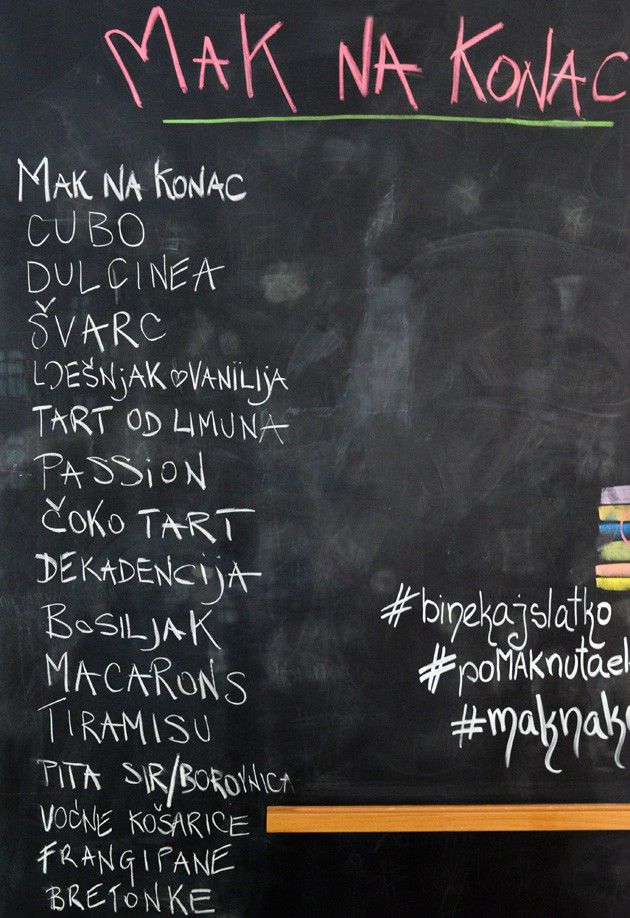 MAK NA KONAC
MAK NA KONAC
CUBO
DULCINEA
ŠVARC
LJEŠNJAK♡VANILIJA
TART OD LIMUNA
PASSION
ČOKO TART
DEKADENCIJA
BOSILJAK
MACARONS
TIRAMISU
PITA SIR/BOROVNICA
VOĆNE KOŠARICE
FRANGIPANE
BRETONKE
#binekajslatko
#poMAKnutael
#maknak